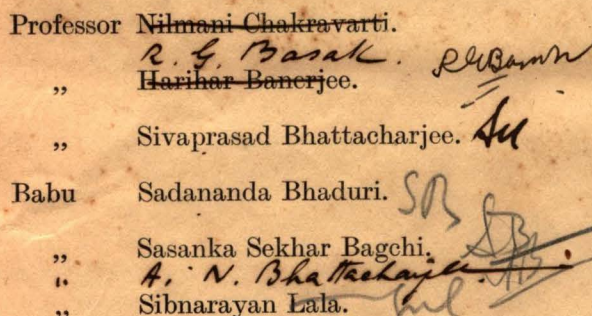 Professor Nilmani Chakravarti.
R. G. Basak.
„ Harihar Banerjee.
„ Sivaprasad Bhattacharjee.
Babu Sadananda Bhaduri. SB
„ Sasanka Sekhar Bagchi. SB
„ A. N. Bhattacharjee.
„ Sibnarayan Lala.